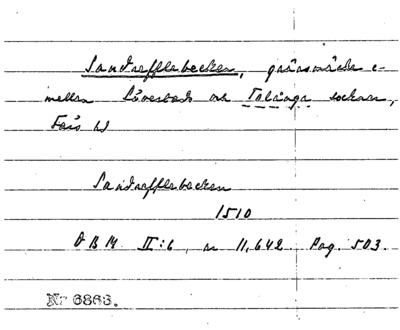 Sandrefflebecken, gränsmärke e-
mellan Lövestads och Tolånga socknar,
Färs
Sandrefflebecken
1510
DBM II:6, nr 11,642. Pag. 503.
Nr 6863.